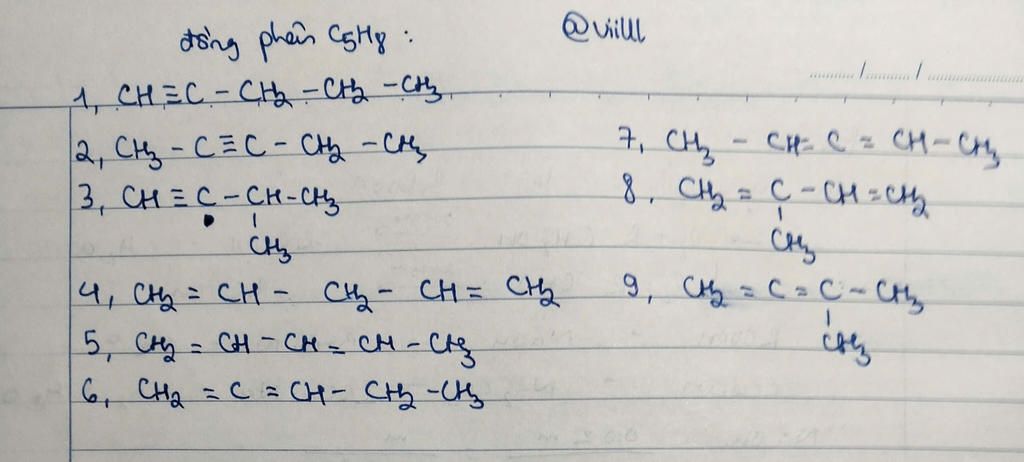 đồng phân C5H8 :
@viilll
1, CH ≡ C - CH2 - CH2 - CH3
2, CH3 - C ≡ C - CH2 - CH3
3, CH ≡ C - CH - CH3
CH3
4, CH2 = CH - CH2 - CH = CH2
5, CH2 = CH - CH = CH - CH3
6, CH2 = C = CH - CH2 - CH3
7, CH3 - CH = C = CH - CH3
8, CH2 = C - CH = CH2
CH3
9, CH2 = C = C - CH3
CH3